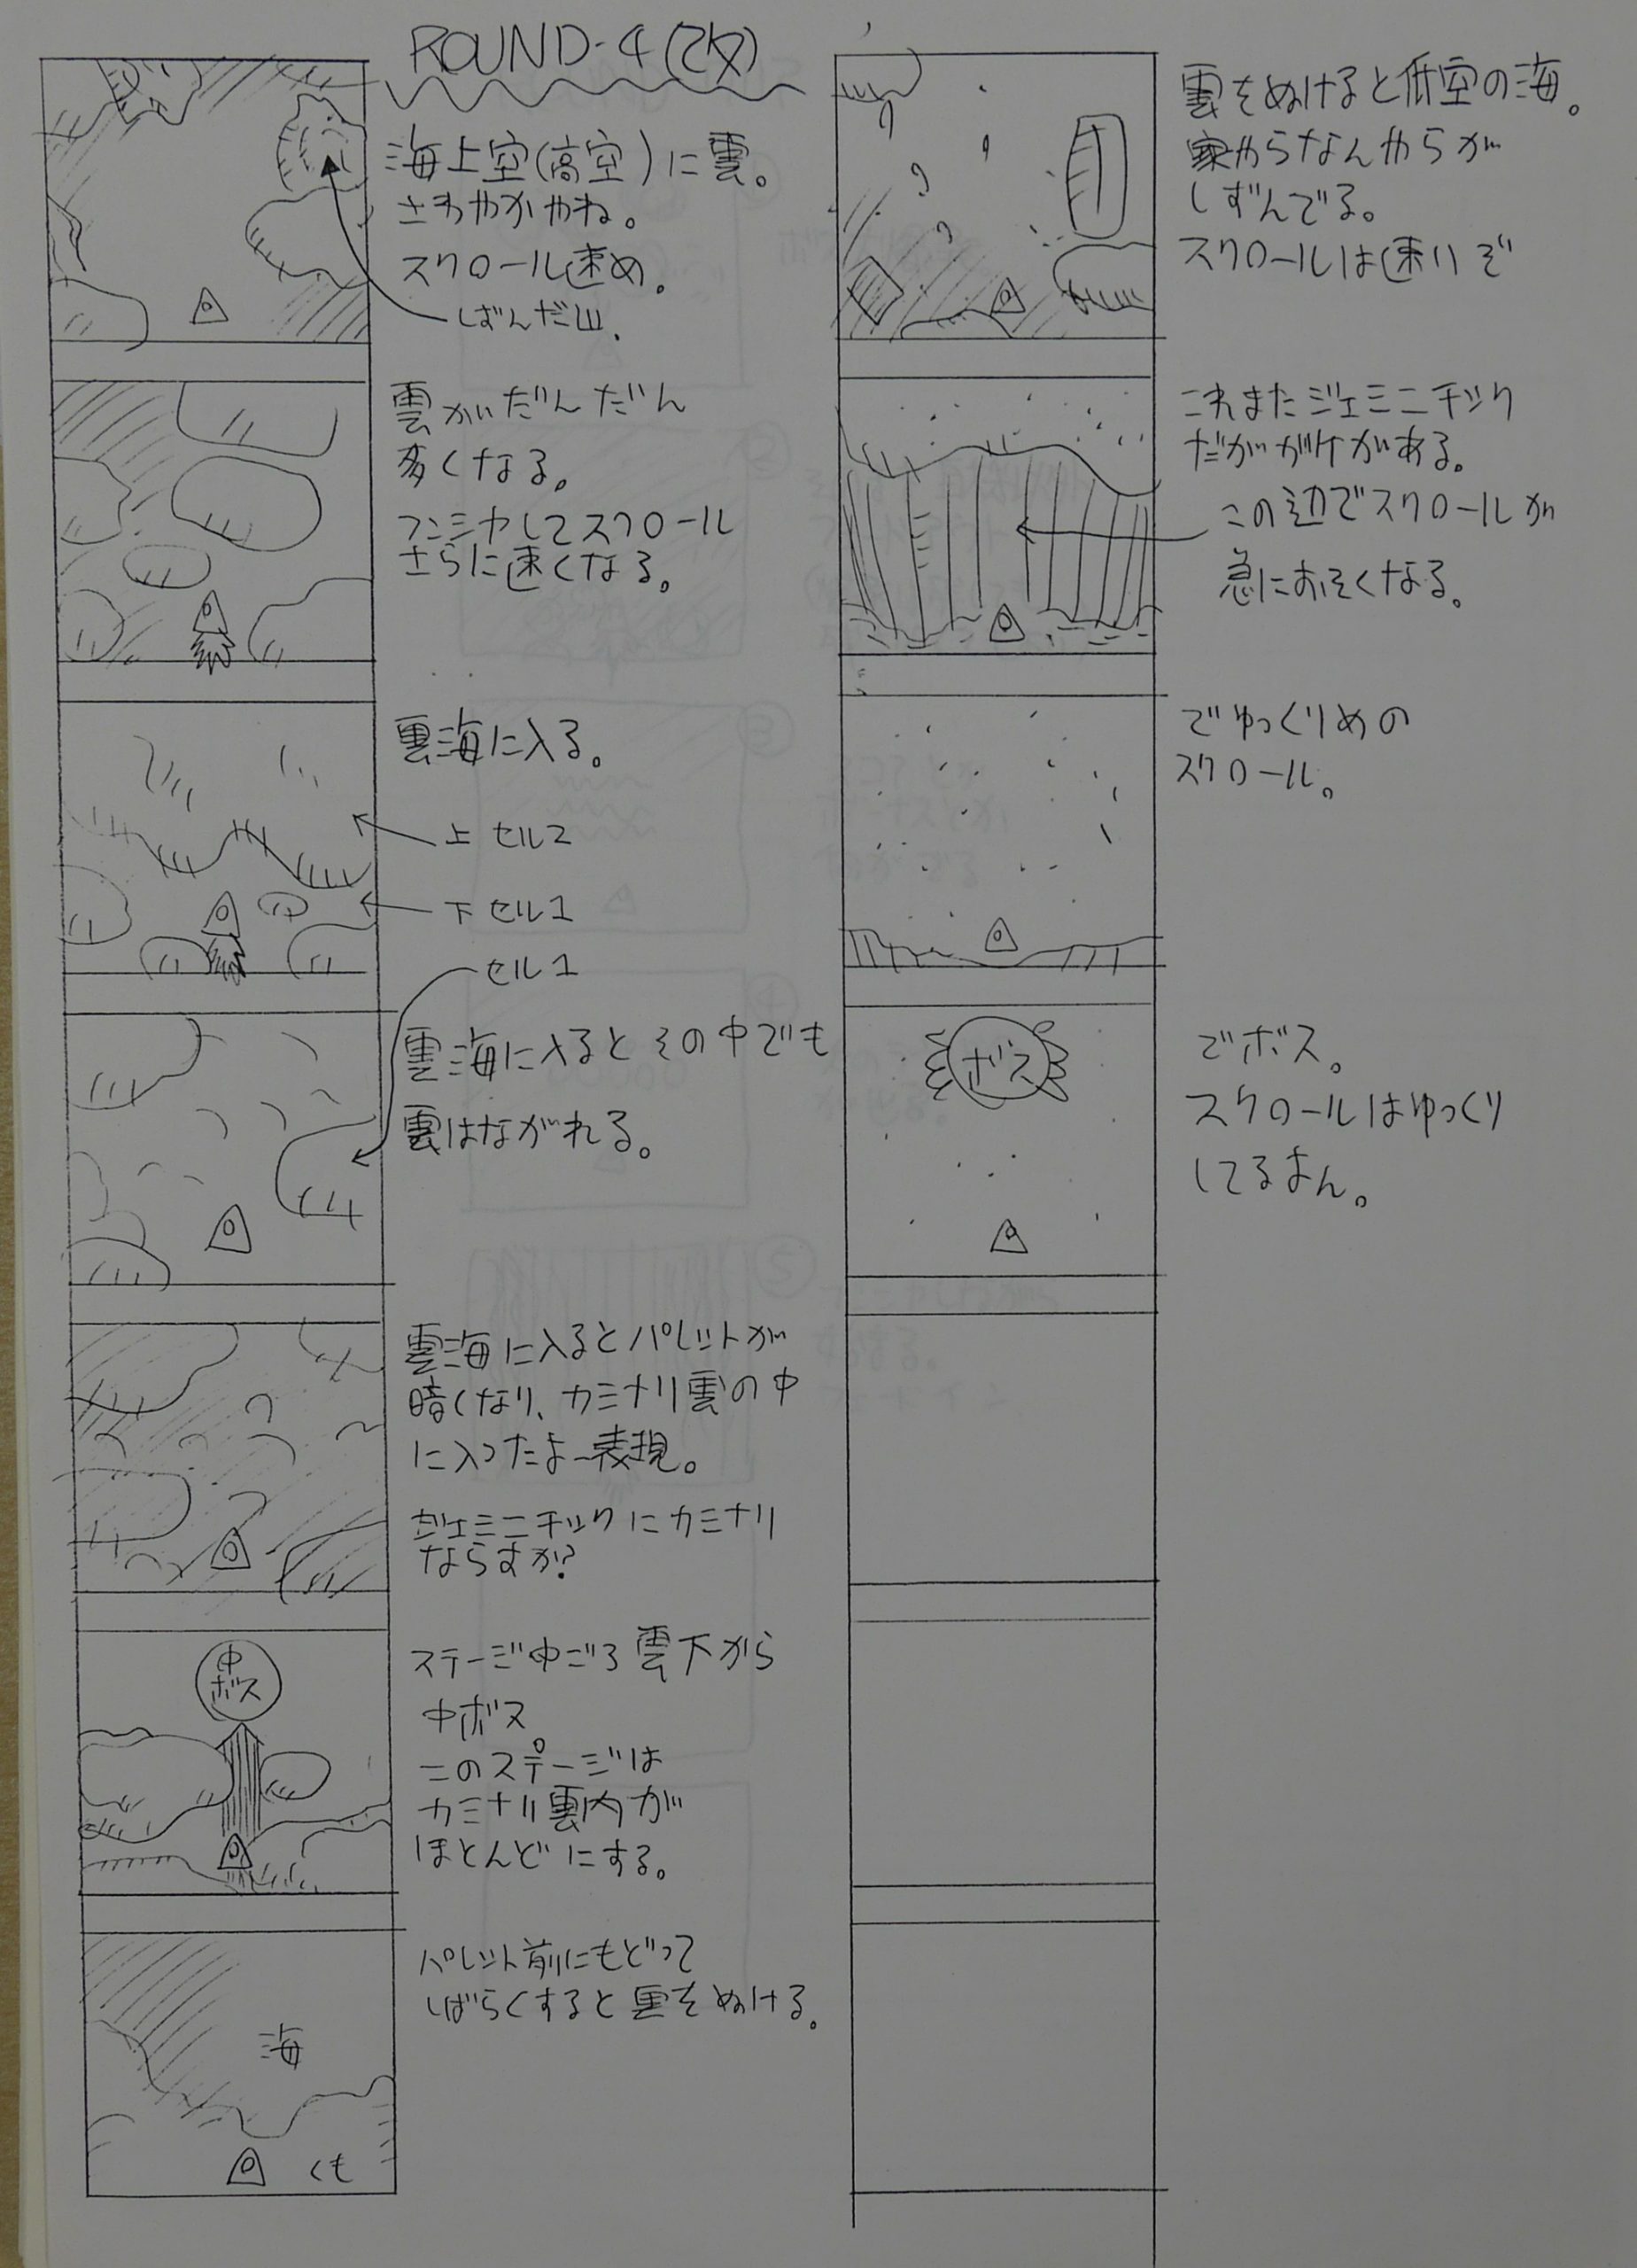 ROUND-4(改)
海上空(高空)に雲。
さわやかやね。
スクロール速め。
しずんだ山.
雲がだんだん
多くなる。
フンミャしてスクロール
さらに速くなる。
雲海に入る。
上 セル2
下 セル1
セル1
雲海に入るとその中でも
雲はながれる。
雲海に入るとパレットが
暗くなり、カミナリ雲の中
に入ったよー表現。
ジェミニチックにカミナリ
ならすか?
中
ボス
ステージ中ごろ雲下から
中ボス。
このステージは
カミナリ雲内が
ほとんどにする。
パレット前にもどって
しばらくすると雲をぬける。
海
くも
雲をぬけると低空の海。
家やらなんやらが
しずんでる。
スクロールは速いぞ
これまたジェミニチック
だがガケがある。
この辺でスクロールが
急におそくなる。
でゆっくりめの
スクロール。
ボス
でボス。
スクロールはゆっくり
してるまん。